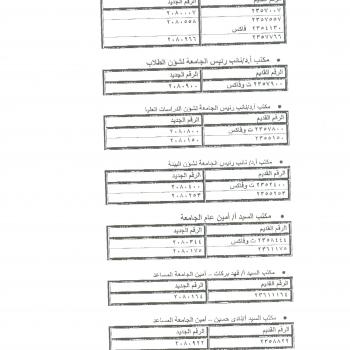 ٢٣٥٧٠٠٧ ٢٠٨٠٠٠٧
٢٣٥٧٥٥٧ ٢٠٨٠٥٥٨
٢٣٥٤١٣٠ فاكس
٢٣٥٧٧٦٦ ٢٠٨٠٢٦٦
مكتب أ.د/نائب رئيس الجامعة لشئون الطلاب
الرقم القديم الرقم الجديد
٢٣٥٧٩٠٠ ت وفاكس ٢٠٨٠٩٠٠
مكتب أ.د/نائب رئيس الجامعة لشئون الدراسات العليا
الرقم القديم الرقم الجديد
٢٣٥٧٨٠٠ ت وفاكس ٢٠٨٠٨٠٠
٢٣٥٥١٥٠ ٢٠٨٠١٥٠
مكتب أ.د/ نائب رئيس الجامعة لشئون البيئة
الرقم القديم الرقم الجديد
٢٣٥٢٤٠٠ ت وفاكس ٢٠٨٠٤٠٠
٢٣٥٥٢٥٣ ٢٠٨٠٢٥٣
مكتب السيد أ/ أمين عام الجامعة
الرقم القديم الرقم الجديد
٢٣٥٨٤٤٤ ت وفاكس ٢٠٨٠٣٤٤
٢٣٦١١٧٥ ٢٠٨٠١٧٥
مكتب السيد أ/ فهد بركات – أمين الجامعة المساعد
الرقم القديم الرقم الجديد
٢٣٦١١٦٤ ٢٠٨٠١٦٤
مكتب السيد أ/ حسين – أمين الجامعة المساعد
الرقم القديم الرقم الجديد
٢٣٥٨٨٢٢ ٢٠٨٠٩٢٢